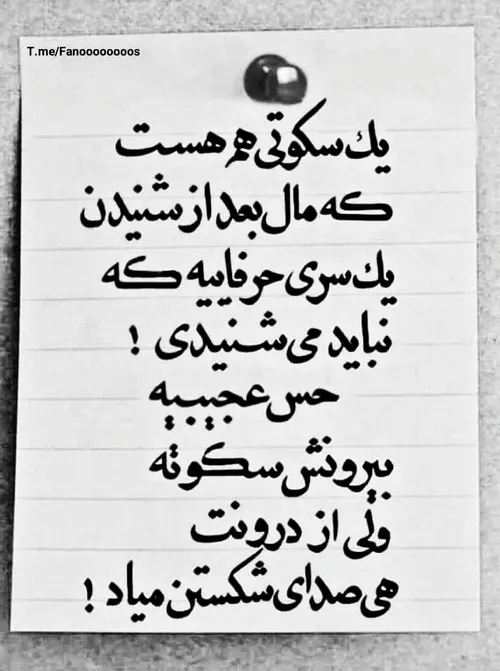 T.me/Fanooooooooos
یك سکوتی هم هست
که مال بعد از شنیدن
یك سری حرفاییه که
نباید می شنیدی !
حس عجیبیه
بیرونش سکوته
ولی از درونت
هی صدای شکستن میاد !